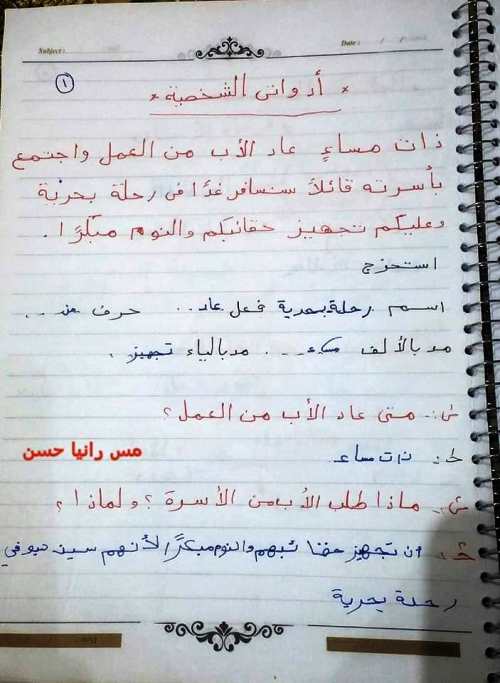 Subject :
Date : / /
١
* أدواتى الشخصية *
ذات مساءٍ عاد الأب من العمل واجتمع
بأسرته قائلاً سنسافر غدًا فى رحلة بحرية
وعليكم تجهيز حقائبكم والنوم مبكرًا .
استخرج
اسم رحلة بحرية فعل عاد .. حرف من ..
مد بالألف مساء ... مد بالياء تجهيز .
س: متى عاد الأب من العمل ؟
ج: ذات مساء
مس رانيا حسن
س: ماذا طلب الأب من الأسرة ؟ ولماذا ؟
ج: ان تجهيز حقائبهم والنوم مبكرًا لأنهم في
رحلة بحرية